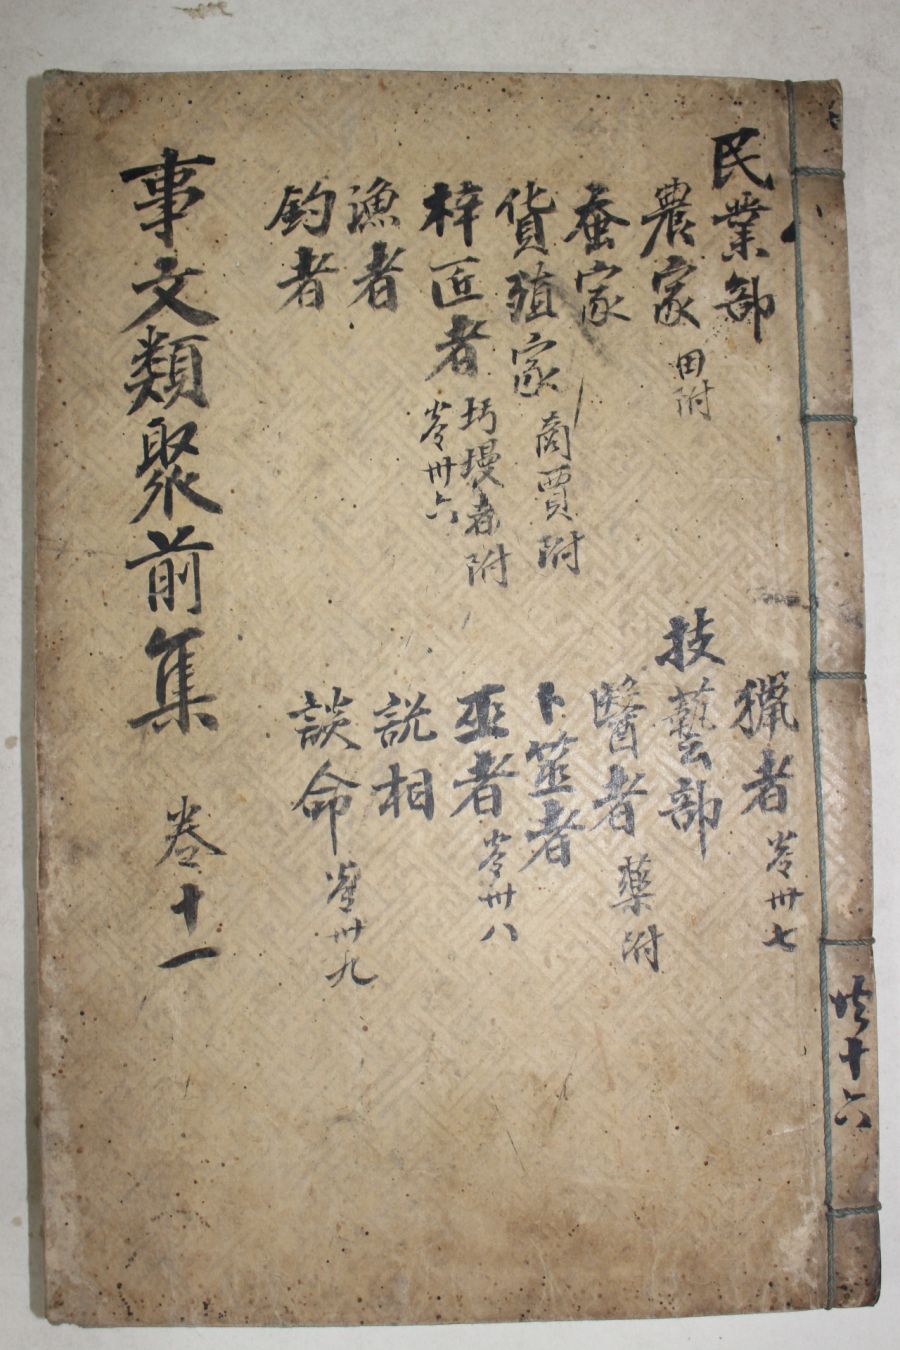 民業部
農家 田附
蚕家
貨殖家 商賈附
梓匠者 圬墁者附
卷卅六
漁者
釣者
獵者 卷卅七
技藝部
醫者 藥附
卜筮者
巫者 卷卅八
説相
談命 卷卅九
事文類聚前集 卷十一
共十六